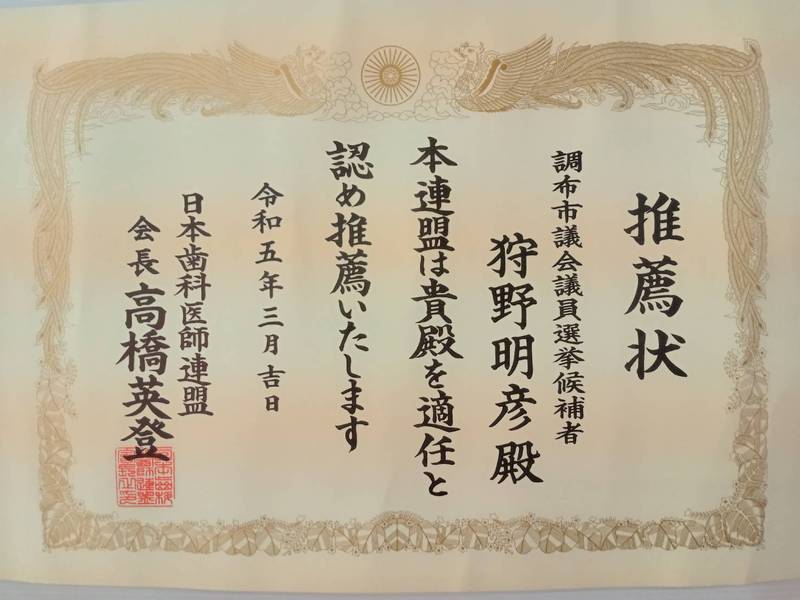 推薦状
調布市議会議員選挙候補者
狩野明彦殿
本連盟は貴殿を適任と
認め推薦いたします
令和五年三月吉日
日本歯科医師連盟
会長 高橋英登